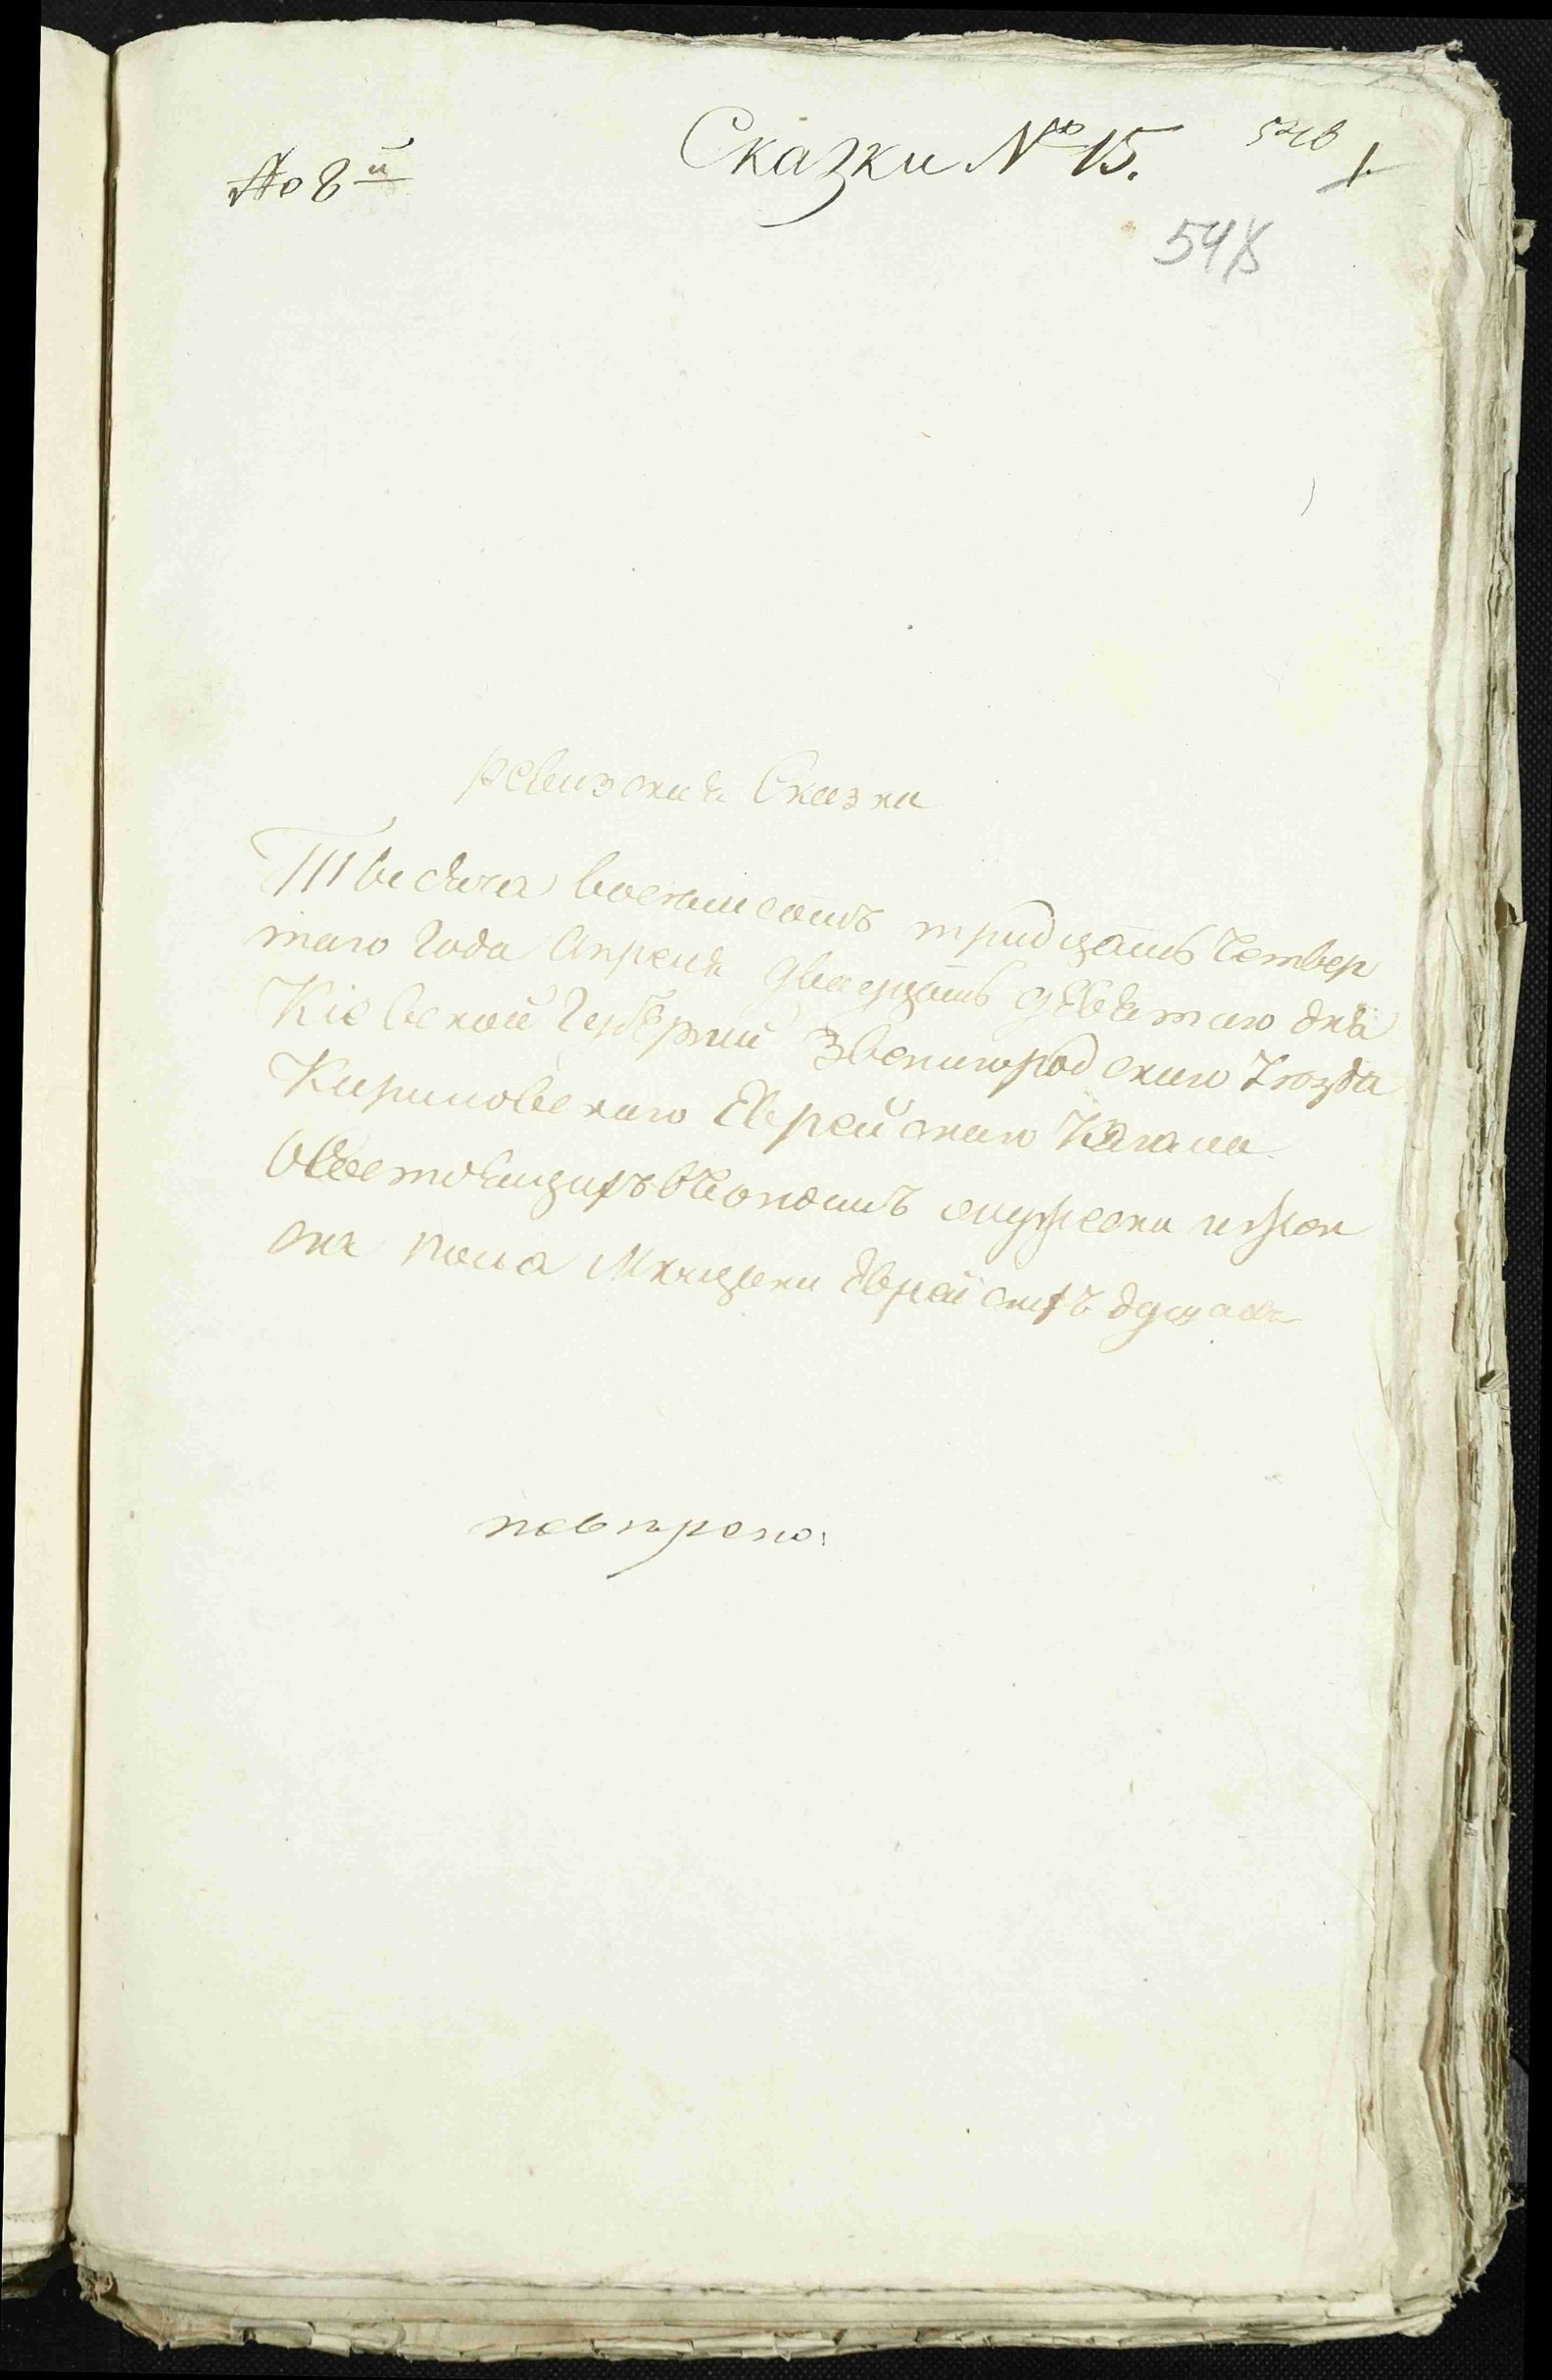 По 8й
Сказки № 15.
1.
548
ревизския Сказки
Тысяча восемисотъ тридцать Четвер
таго Года Апреля двадцать девятаго дня
Кіевской Губернии Звенигородскаго
Кириловскаго Еврейскаго Кагала
о состоящихъ мужеска и жен
ска пола Мещански Еврейскихъ душахъ